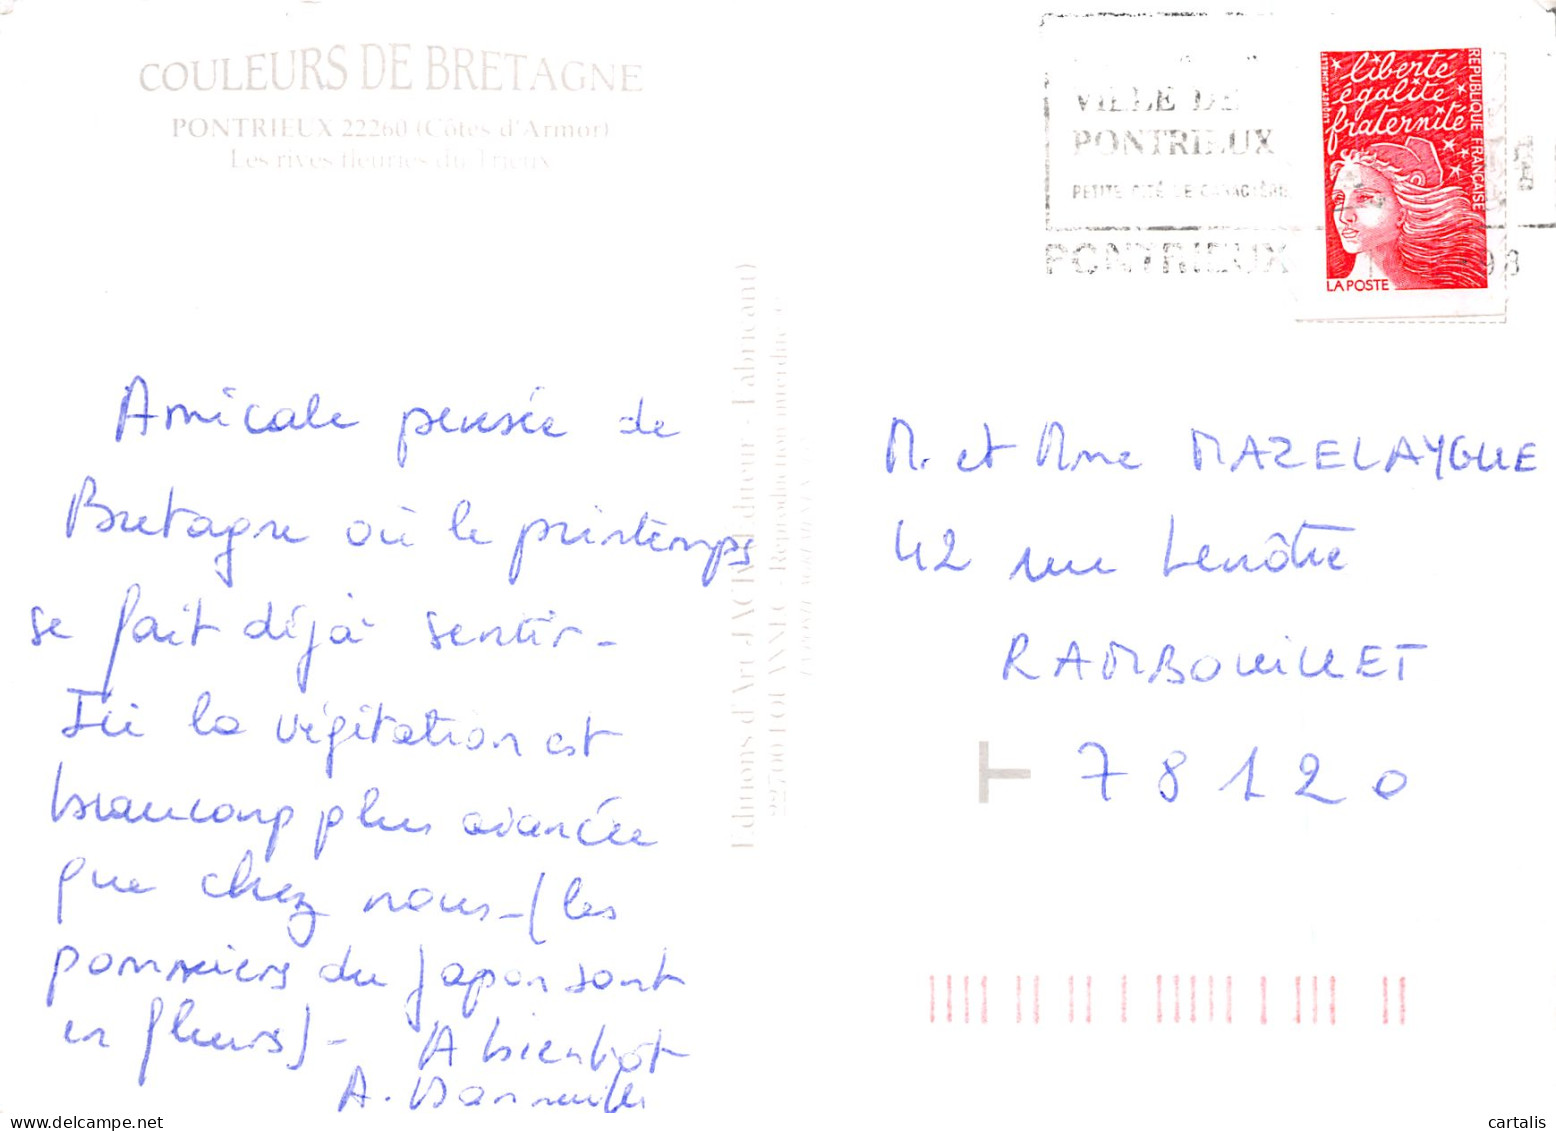 COULEURS DE BRETAGNE
PONTRIEUX 22260 (Côtes d'Armor)
Les rives fleuries du Trieux
VILLE DE
PONTRIEUX
PETITE CITÉ DE CARACTÈRE
PONTRIEUX
98
liberté
égalité
fraternité
RÉPUBLIQUE FRANÇAISE
LA POSTE
Amicale pensée de
Bretagne où le printemps
se fait déjà sentir -
Ici la végétation est
beaucoup plus avancée
que chez nous - (les
pommiers du Japon sont
en fleurs) - A bientôt
Editions d'Art JACK Editeur - Fabricant)
22700 LOUANNEC - Reproduction interdite
M. et Mme MAZELAYGUE
42 rue Lenôtre
RAMBOUILLET
78120
delcampe.net
cartalis